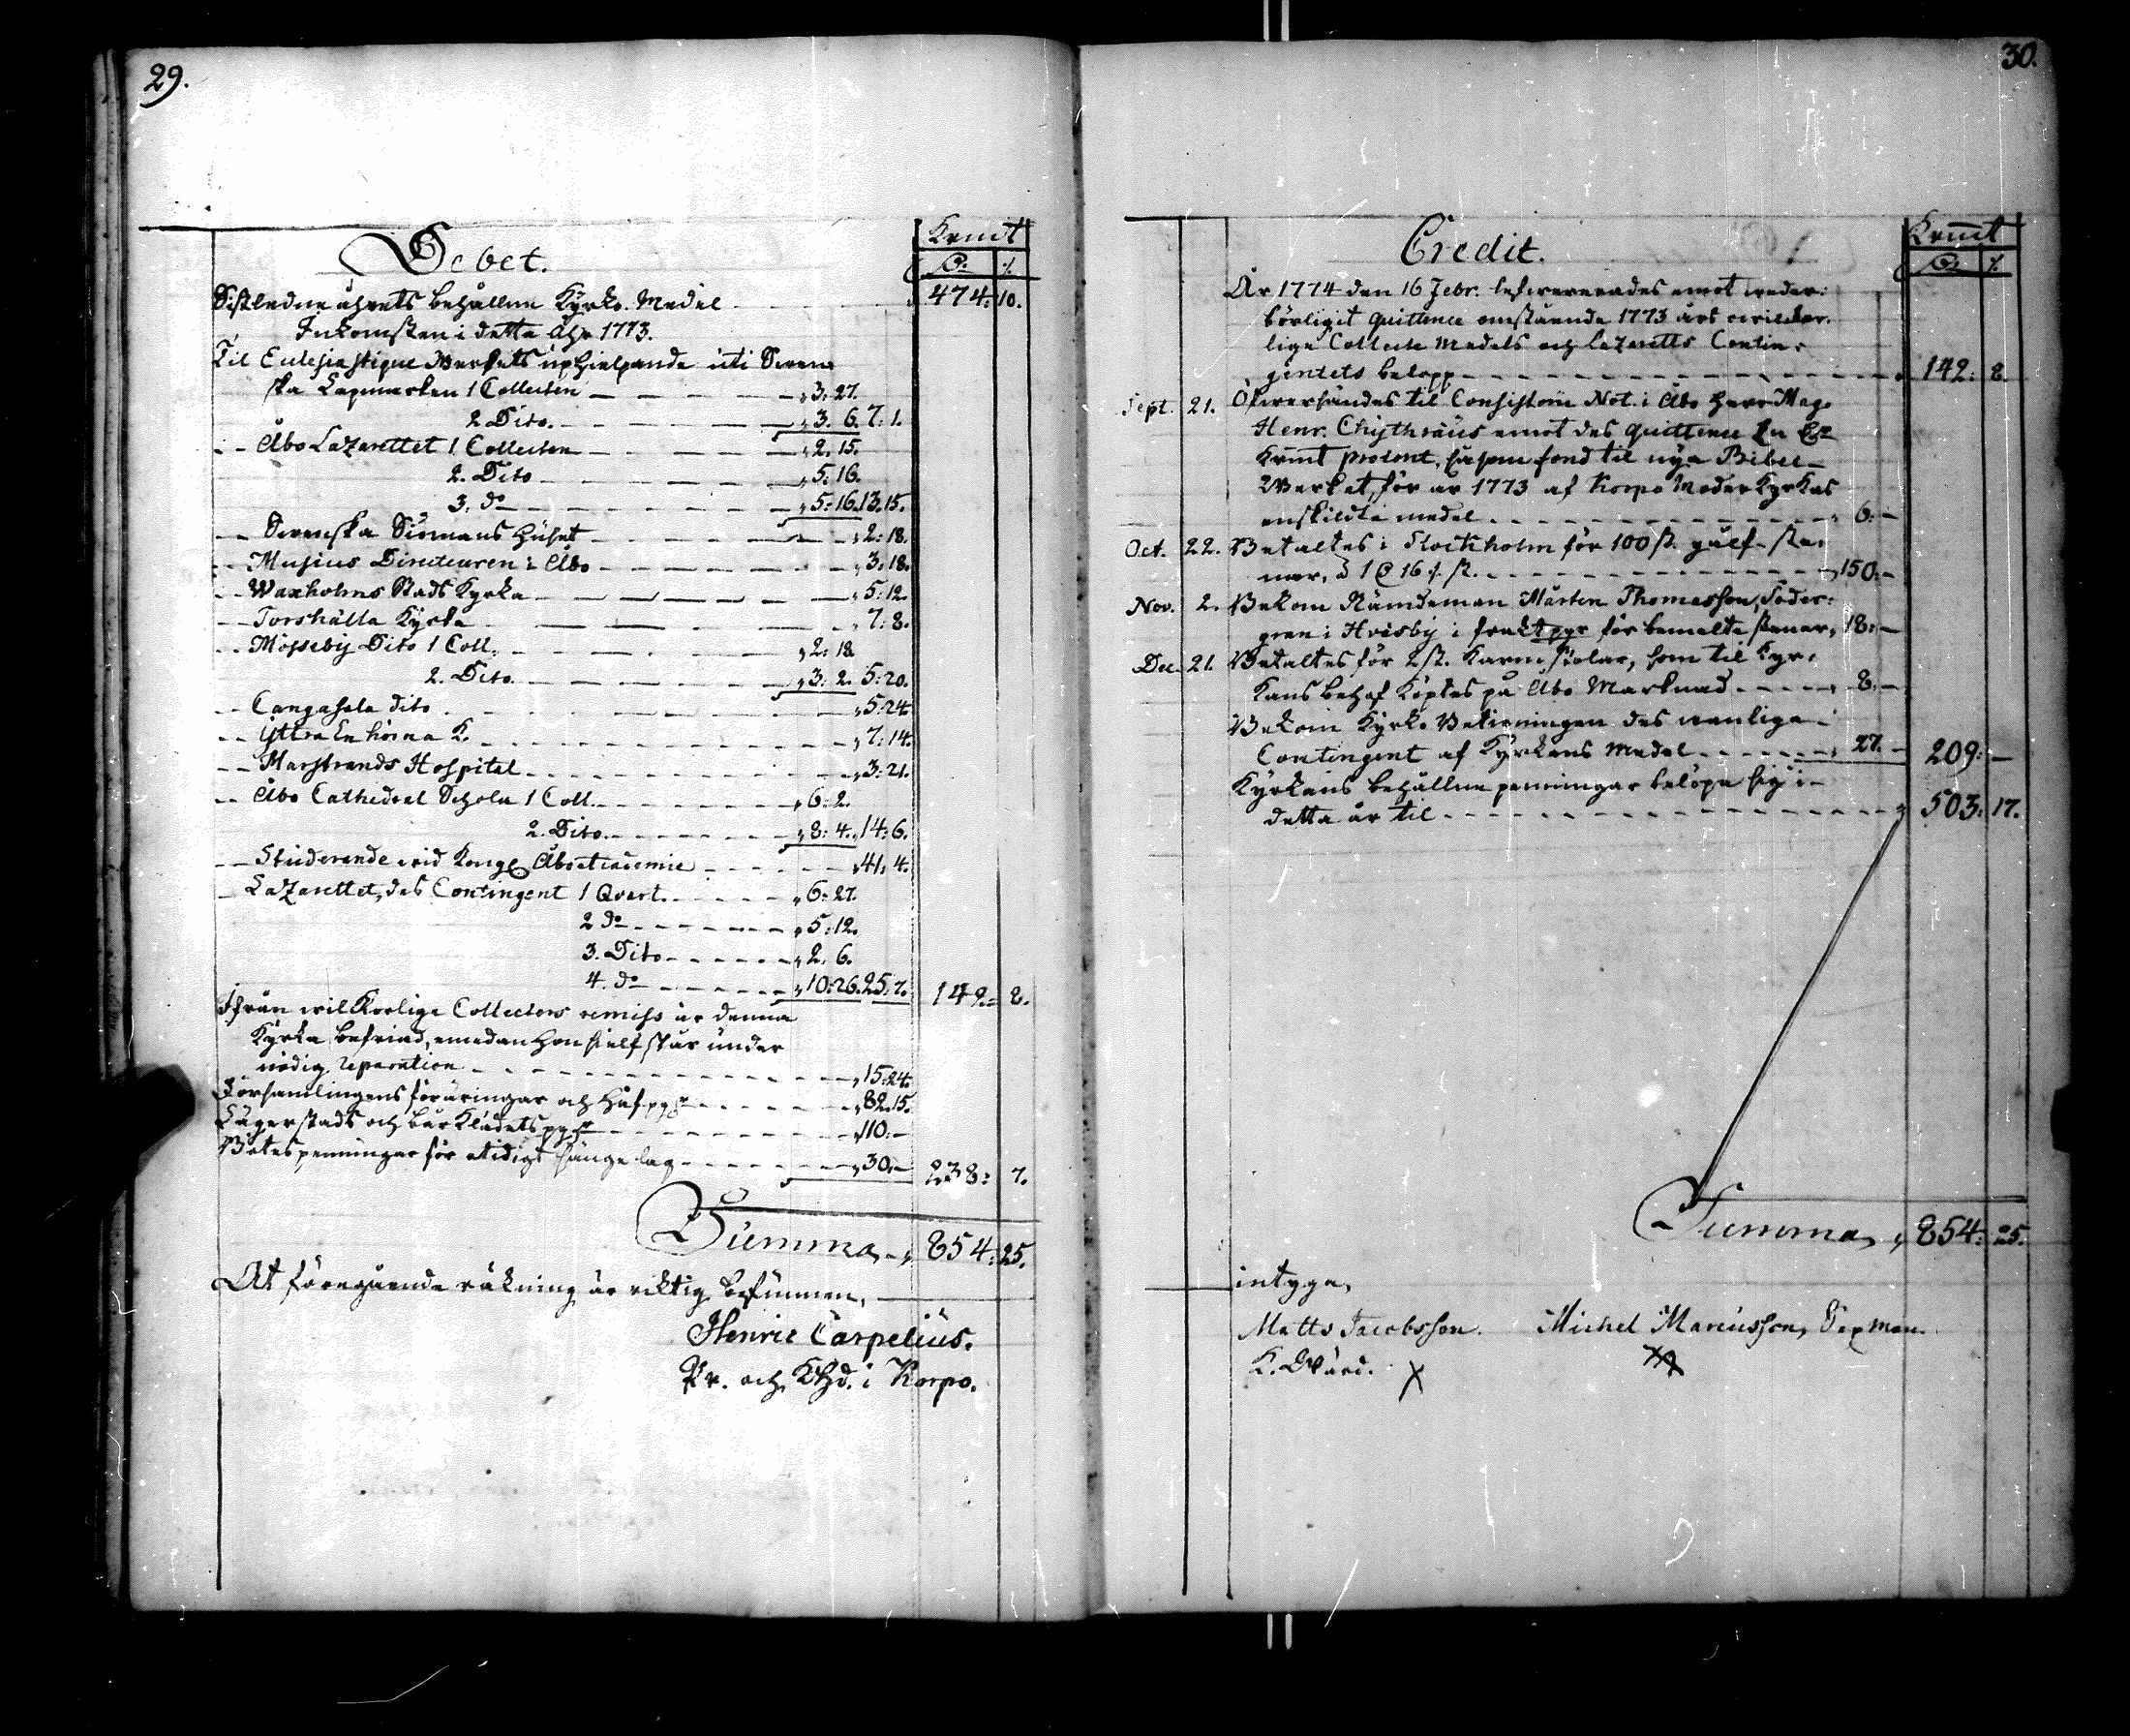 29.
Debet.
Kvmt
Sistledne åhrets behållne Kyrko-Medel 474: 10.
Inkomsten i detta Åhr 1773.
Til Eclesiastique Werkets uphielpande uti Swen-
ska Lapmarken 1 Collecten 3: 27.
2 Dito. 3. 6. 7: 1.
Åbo Lazarettet 1 Collecten 2. 15.
2. Dito 5: 16.
3. do 5: 16. 13. 15.
Swenska Siömans Huset 2: 18.
Musices Directeuren i Åbo 3. 18.
Waxholms Stads Kyrka 5: 12.
Torshälla Kyrka 7: 8.
Mösseby Dito 1 Coll. 2: 18.
2. Dito 3: 2. 5: 20.
Cangasala dito 5: 24.
Yttra Enhörna K. 7: 14.
Marstrands Hospital 3: 21.
Åbo Cathedral Schola 1 Coll. 6: 2.
2. Dito 8: 4. 14: 6.
Studerande wid Kongl. Åbo Academie 41. 4.
Lazarettet, des Contingent 1 Qvart. 6: 27.
2 do 5: 12.
3. Dito 2. 6.
4. do 10: 26. 25. 7. 142. 8.
Ifrån wilkorlige Collecters remiss är denna
Kyrka befriad, emedan hon sielf står under
nödig reparation 15: 24.
Församlingens föräringar och håfpgr 82. 15.
Lägerstads och bårklädets pgr 110. -
Bötespenningar för otidigt sängelag 30. - 238: 7.
Summa 854: 25.
At föregående räkning är riktig befunnen,
Henric Carpelius.
Pr. och KHd. i Korpo.
30.
Credit.
Kvmt
År 1774 den 16 Febr. lefwererades emot weder-
börligit quittence omstående 1773 års wilkor-
lige Collecte Medels och Lazaretts Contin-
gentets belopp 142: 8.
Sept. 21. Öfwersändes til Consistorii Not. i Åbo Herr Mag.
Henr. Chythræus emot des quittence
Kvmt procent, såsom fond til nya Bibel-
Werket, för år 1773 af Korpo Moder Kyrkas
enskildta medel 6: -
Oct. 22. Betaltes i Stockholm för 100 st. gålf-ste-
nar, à 1 16 st. 150: -
Nov. 2. Bekom Nämdeman Mårten Thomasson Söder-
gren i Hvisby i frakt pgr för bemälte stenar 18: -
Dec. 21. Betaltes för 2 st. Karm stolar, som til Kyr-
kans behof köptes på Åbo Marknad 8: -
Bekom Kyrko Betieningen des wanliga
Contingent af Kyrkans Medel 27. - 209: -
Kyrkans behållne penningar belöpa sig i
detta år til 503: 17.
Summa 854: 25.
intyga,
Matts Jacobsson. Michel Marcusson, Sexman.
K. Wärd.